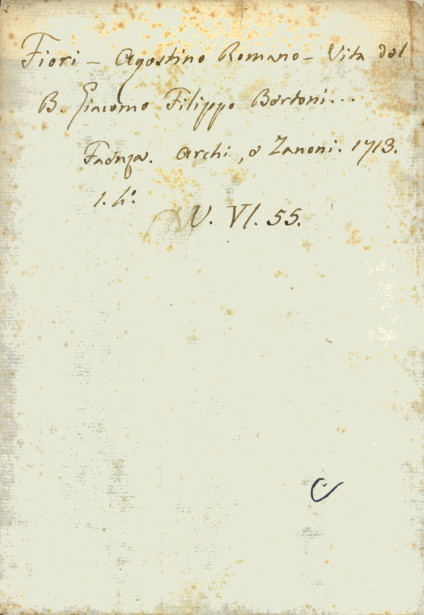 Fiori – Agostino Romano – Vita del
B. Giacomo Filippo Bertoni...
Faenza. Archi, e Zanoni. 1713.
1. 4.º
V. VI. 55.